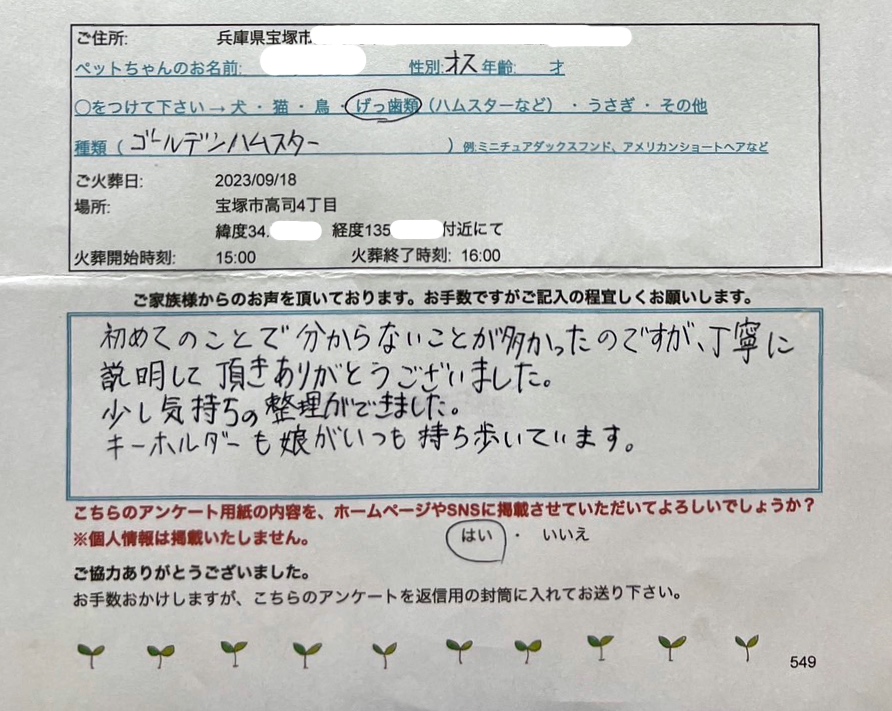 ご住所: 兵庫県宝塚市
ペットちゃんのお名前: 性別:オス 年齢: 才
○をつけて下さい→ 犬・猫・鳥・げっ歯類（ハムスターなど）・うさぎ・その他
種類（ ゴールデンハムスター ）例:ミニチュアダックスフンド、アメリカンショートヘアなど
ご火葬日: 2023/09/18
場所: 宝塚市高司4丁目
緯度34. 経度135 付近にて
火葬開始時刻: 15:00 火葬終了時刻: 16:00
ご家族様からのお声を頂いております。お手数ですがご記入の程宜しくお願いします。
初めてのことで分からないことが多かったのですが、丁寧に
説明して頂きありがとうございました。
少し気持ちの整理ができました。
キーホルダーも娘がいつも持ち歩いています。
こちらのアンケート用紙の内容を、ホームページやSNSに掲載させていただいてよろしいでしょうか？
※個人情報は掲載いたしません。 はい ・ いいえ
ご協力ありがとうございました。
お手数おかけしますが、こちらのアンケートを返信用の封筒に入れてお送り下さい。
549